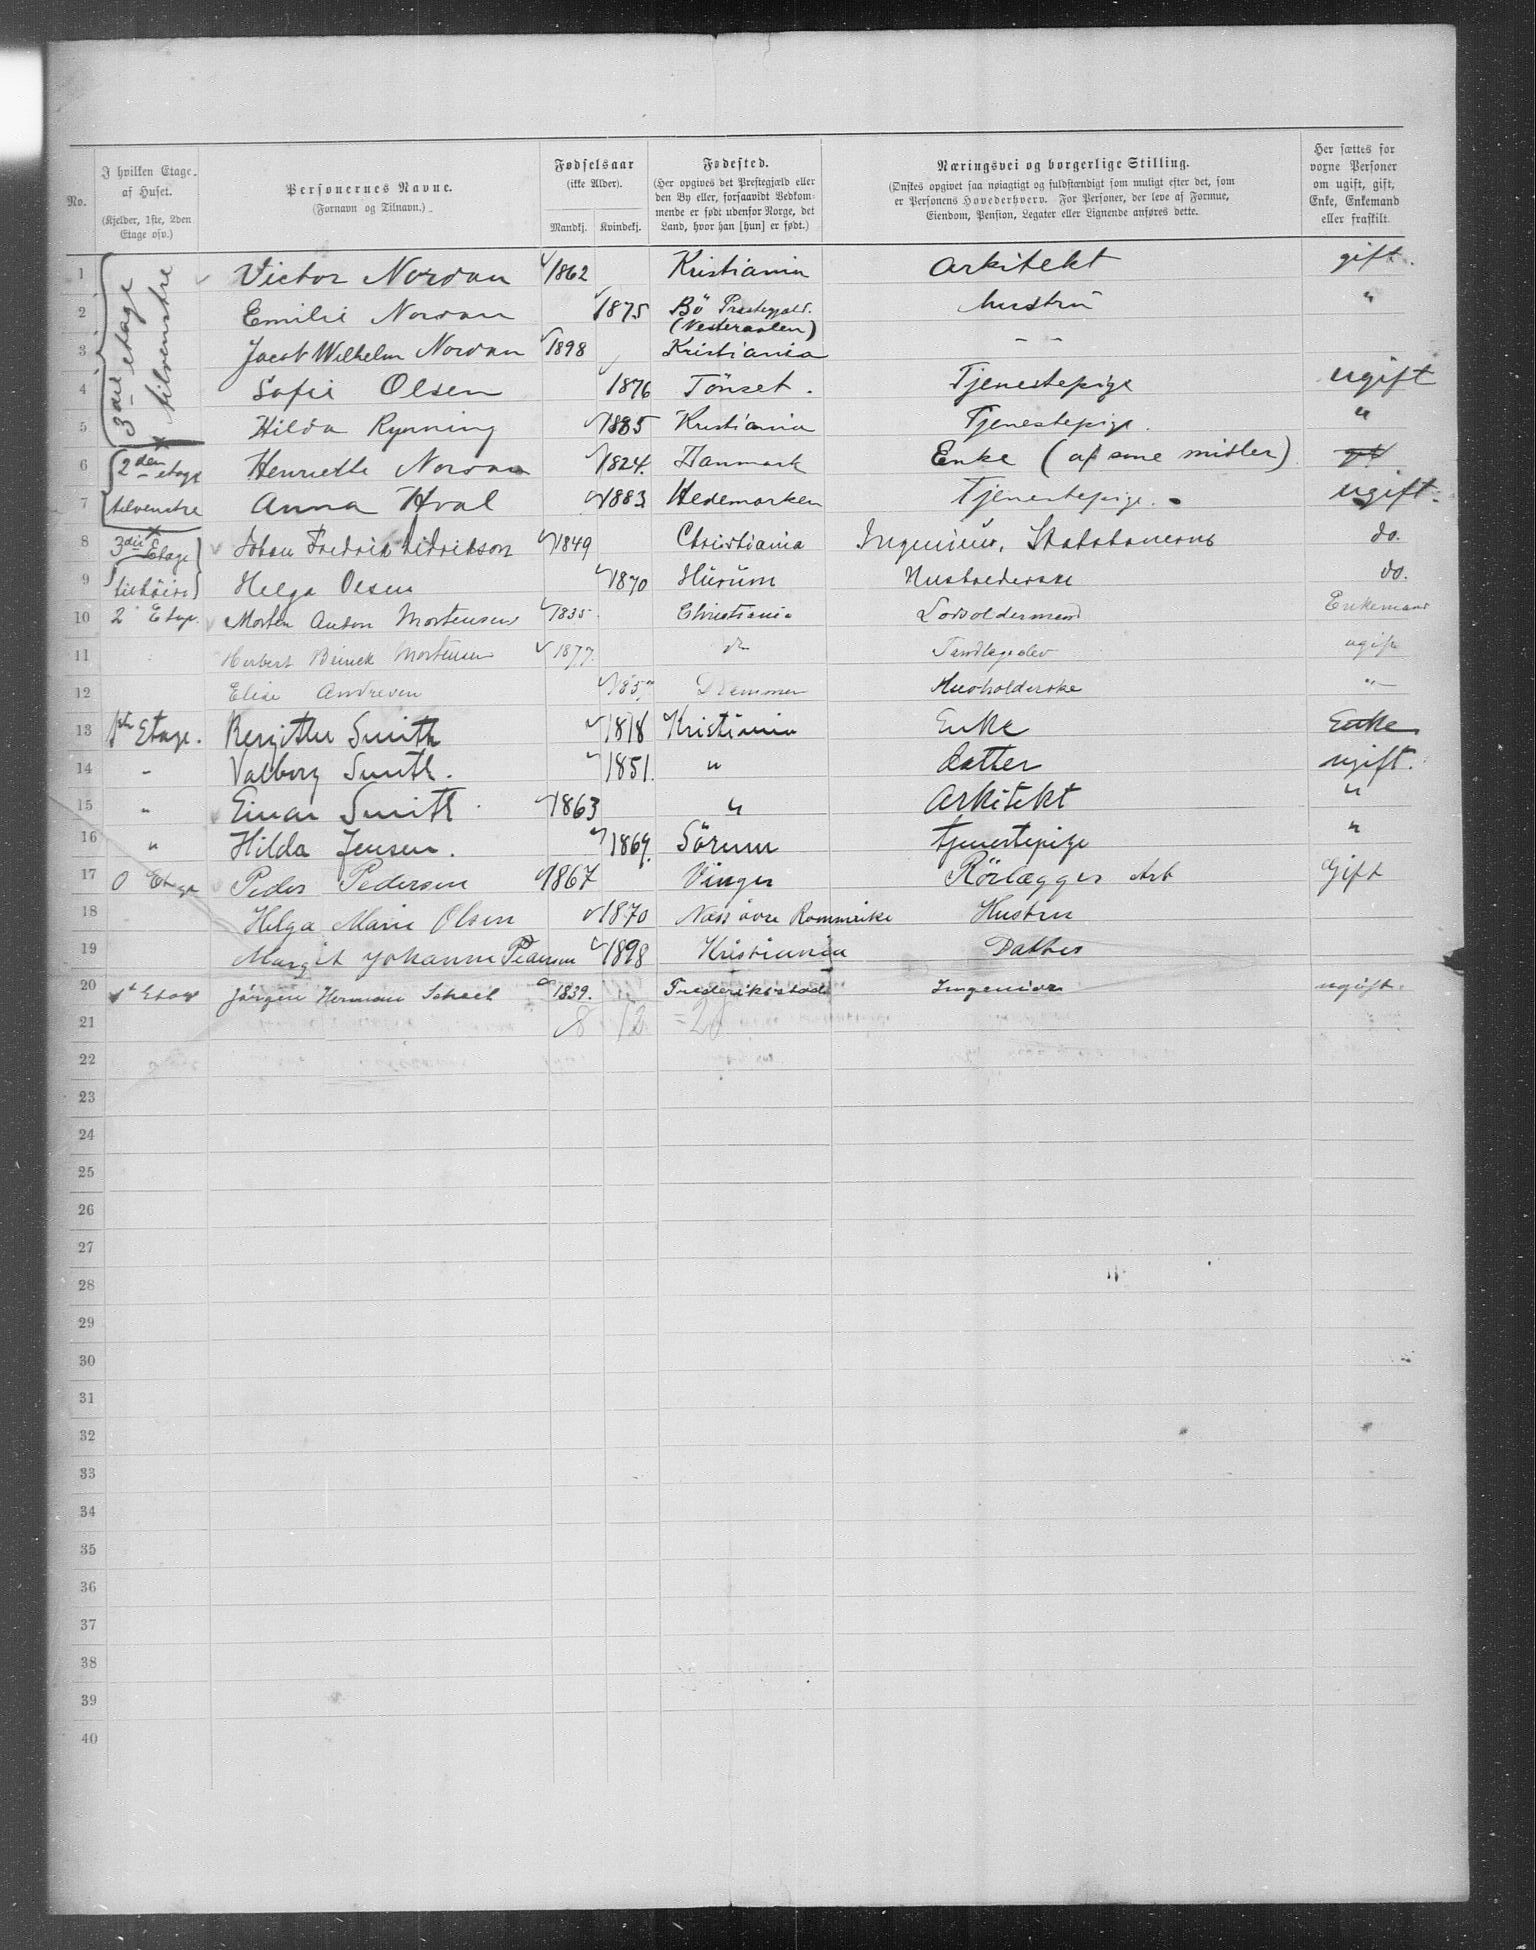 No. | I hvilken Etage af Huset. (Kjelder, 1ste, 2den Etage osv.) | Personernes Navne. (Fornavn og Tilnavn.) | Fødselsaar (ikke Alder). Mandkj. Kvindekj. | Fødested. (Her opgives det Prestegjæld eller den By eller, forsaavidt Vedkommende er født udenfor Norge, det Land, hvor han [hun] er født.) | Næringsvei og borgerlige Stilling. (Ønskes opgivet saa nøiagtigt og fuldstændigt som muligt efter det, som er Personens Hovederhverv. For Personer, der leve af Formue, Eiendom, Pension, Legater eller Lignende anføres dette. | Her sættes for vorne Personer om ugift, gift, Enke, Enkemand eller fraskilt.
3die etage tilvenstre
1 Victor Nordan 1862 Kristiania Arkitekt gift.
2 Emilie Nordan 1875 Bö Prestegjeld. (Vesteraalen) hustru "
3 Jacob Wilhelm Nordan 1898 Kristiania - -
4 Sofie Olsen 1876 Tönset. Tjenestepige ugift
5 Hilda Rynning 1885 Kristiania Tjenestepige. "
6 2den etage Henriette Nordan 1824. Danmark Enke (af sine midler)
7 tilvenstre Anna Hval 1883 Hedemarken Tjenestepige. ugift.
8 3die Etage Johan Fredrik 1849 Christiania Ingeniør, Statsbanerne do.
9 Helga Olsen 1870 Hurum Husholderske do.
10 2 Etage. Morten Anton Mortensen 1835. Christiania Lodsoldermand Enkemand
11 Herbert Mortensen 1877. do Tandlægeelev ugift
12 Elise Andresen Drammen Husholderske "
13 1ste Etage. Bergitte Smith 1818 Kristiania Enke Enke
14 " Valborg Smith. 1851. " datter ugift.
15 " Einar Smith 1863 " Arkitekt "
16 " Hilda Jensen. 1869. Sörum tjenestepige "
17 0 Etage Peder Pedersen 1867 Vinger Rörlægger Arb Gift
18 Helga Marie Olsen 1870 Næs övre Rommerike Hustru
19 Margit Johanne Pedersen 1898 Kristiania Datter
20 1st Etage Jörgen Herman Scheel 1839. Frederiksstad Ingeniør ugift.
21 8 12 = 20
22
23
24
25
26
27
28
29
30
31
32
33
34
35
36
37
38
39
40